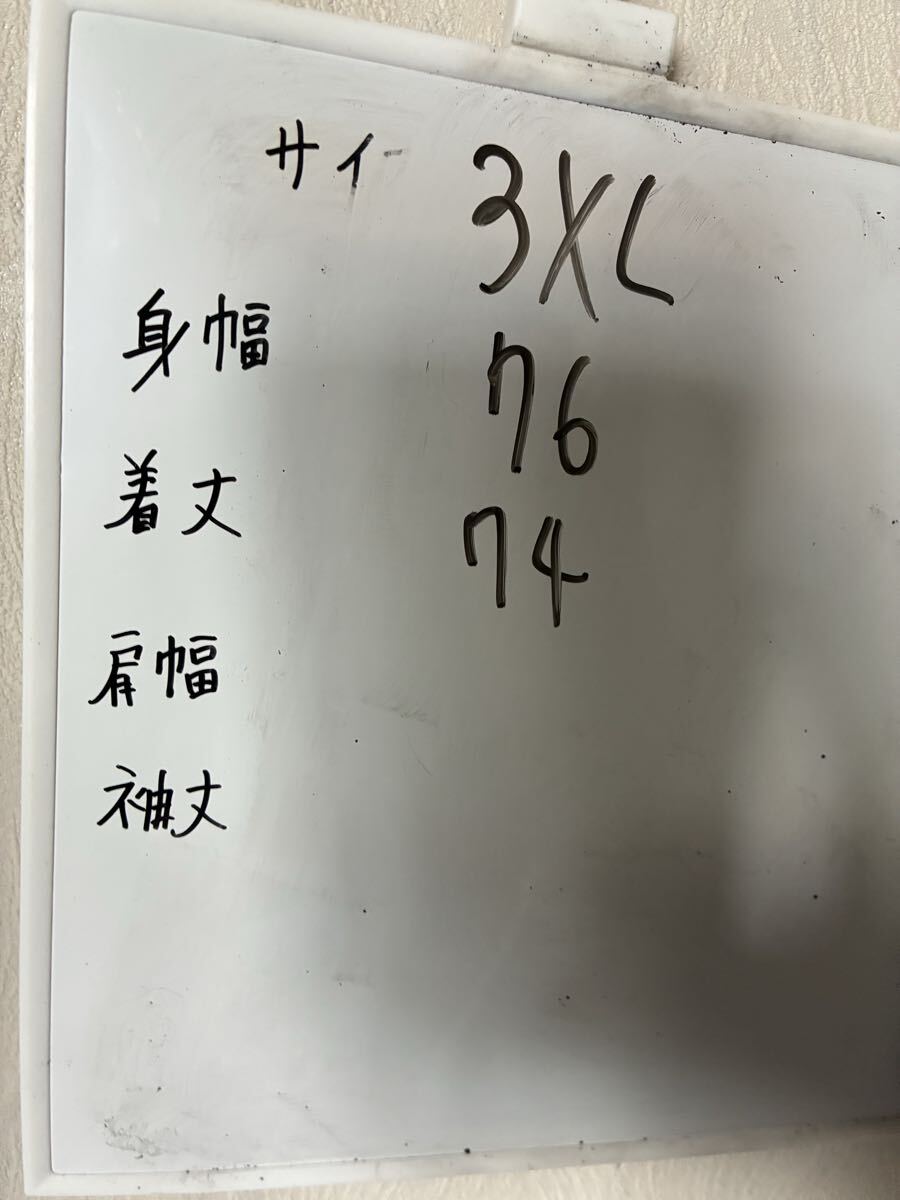 サイ 3XL
身幅 76
着丈 74
肩幅
袖丈